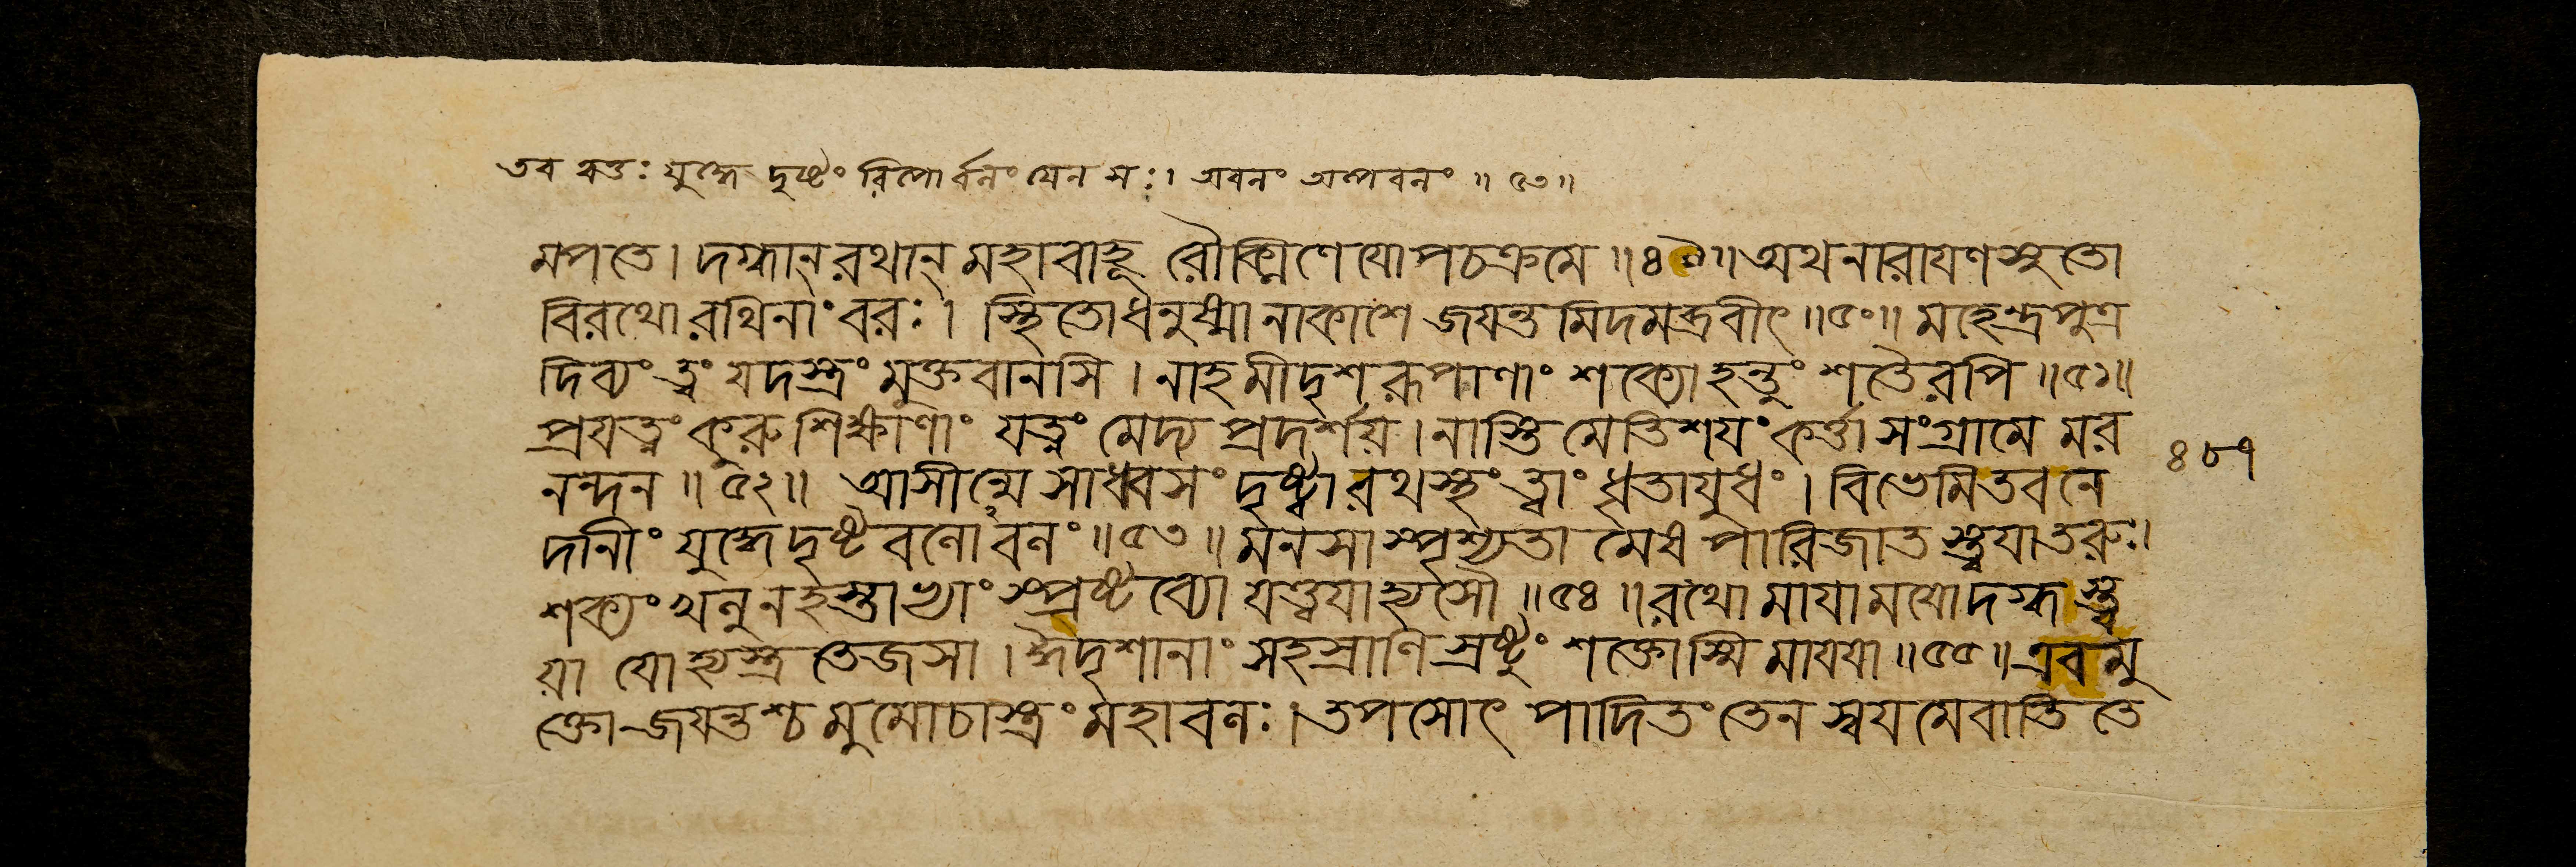 তব বতঃ যুদ্ধে দৃষ্টং রিপোর্ব্বলং যেন সঃ। অবলং অল্পবলং ॥ ৫৩॥
মপততে। দগ্ধান্ রথান্ মহাবাহূ রৌক্মিণেযোপচক্রমে ॥৪৯॥ অথ নারাযণসুতো
বিরথো রথিনাং বরঃ। স্থিতো ধনুষ্মানাকাশে জযন্তমিদমব্রবীৎ ॥৫০॥ মহেন্দ্রপুত্র
দিব্যং ত্বং যদস্ত্রং মুক্তবানসি। নাহমীদৃশরূপাণাং শক্যো হন্তুং শতৈরপি ॥৫১॥
প্রযত্নং কুরু শিক্ষাণাং যত্নং মেদ্য প্রদর্শয়। নাস্তি মেতিশযং কর্ত্তা সংগ্রামে মর
নন্দন ॥ ৫২॥ আসীন্মে সাধ্বসং দৃষ্ট্বা রথস্থং ত্বাং ধৃতাযুধং। বিভেমি তব নে
দানীং যুদ্ধে দৃষ্টবলোবলং ॥৫৩॥ মনসা স্পৃশ্যতামেষ পারিজাতস্ত্বযা তরুঃ।
শক্যং খলু ন হস্তাভ্যাং স্প্রষ্টব্যো যত্ত্বযাহ্যসৌ ॥৫৪॥ রথো মাযামযো দগ্ধস্ত্ব
য়া যোহ্যস্ত্রতেজসা। ঈদৃশানাং সহস্রাণি স্রষ্টুং শক্তোস্মি মাযযা ॥৫৫॥ এবমু
ক্তো জযন্তশ্চ মুমোচাস্ত্রং মহাবলঃ। তপসোৎপাদিতং তেন স্বযমেবাতিতে
৪৮৭